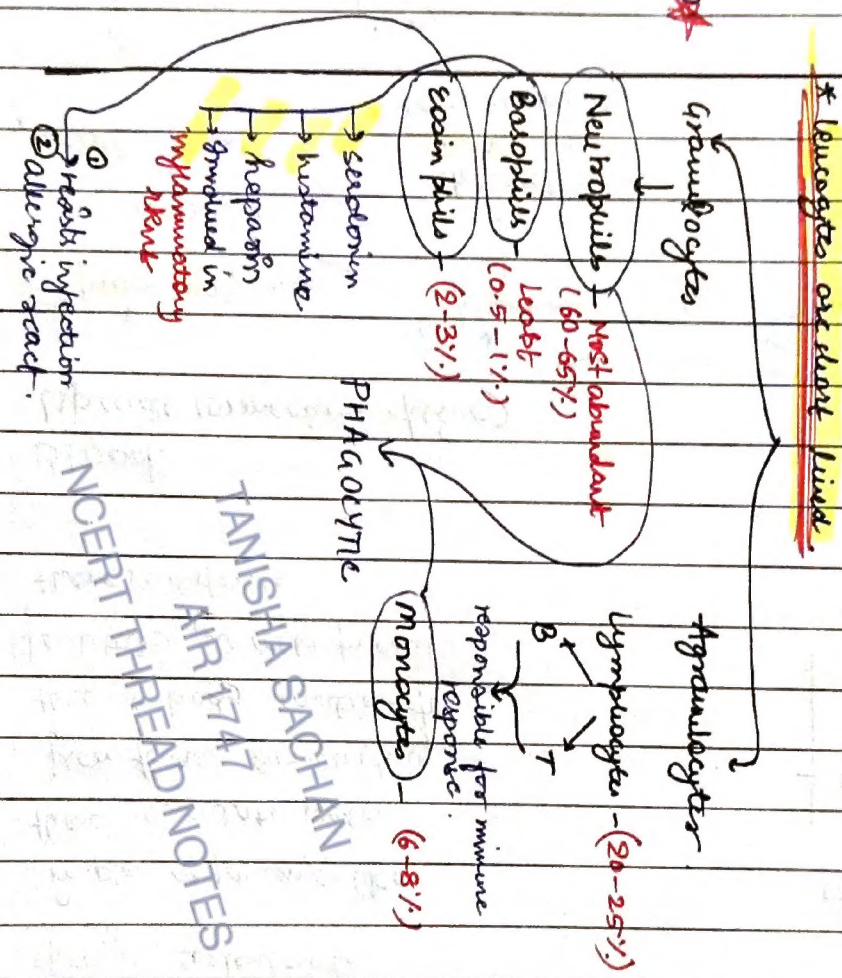 * leucocytes are short lived.
Granulocytes
Agranulocytes
Neutrophils - Most abundant
(60-65%)
Basophills - Least
(0.5-1%)
Eosinphills - (2-3%)
serotonin
histamine
heparin
involved in
inflammatory
rkns
① resists infection
② allergic react.
Lymphocytes - (20-25%)
B T
responsible for immune
response.
Monocytes - (6-8%)
PHAGOCYTIC
TANISHA SACHAN
AIR 1747
NCERT THREAD NOTES